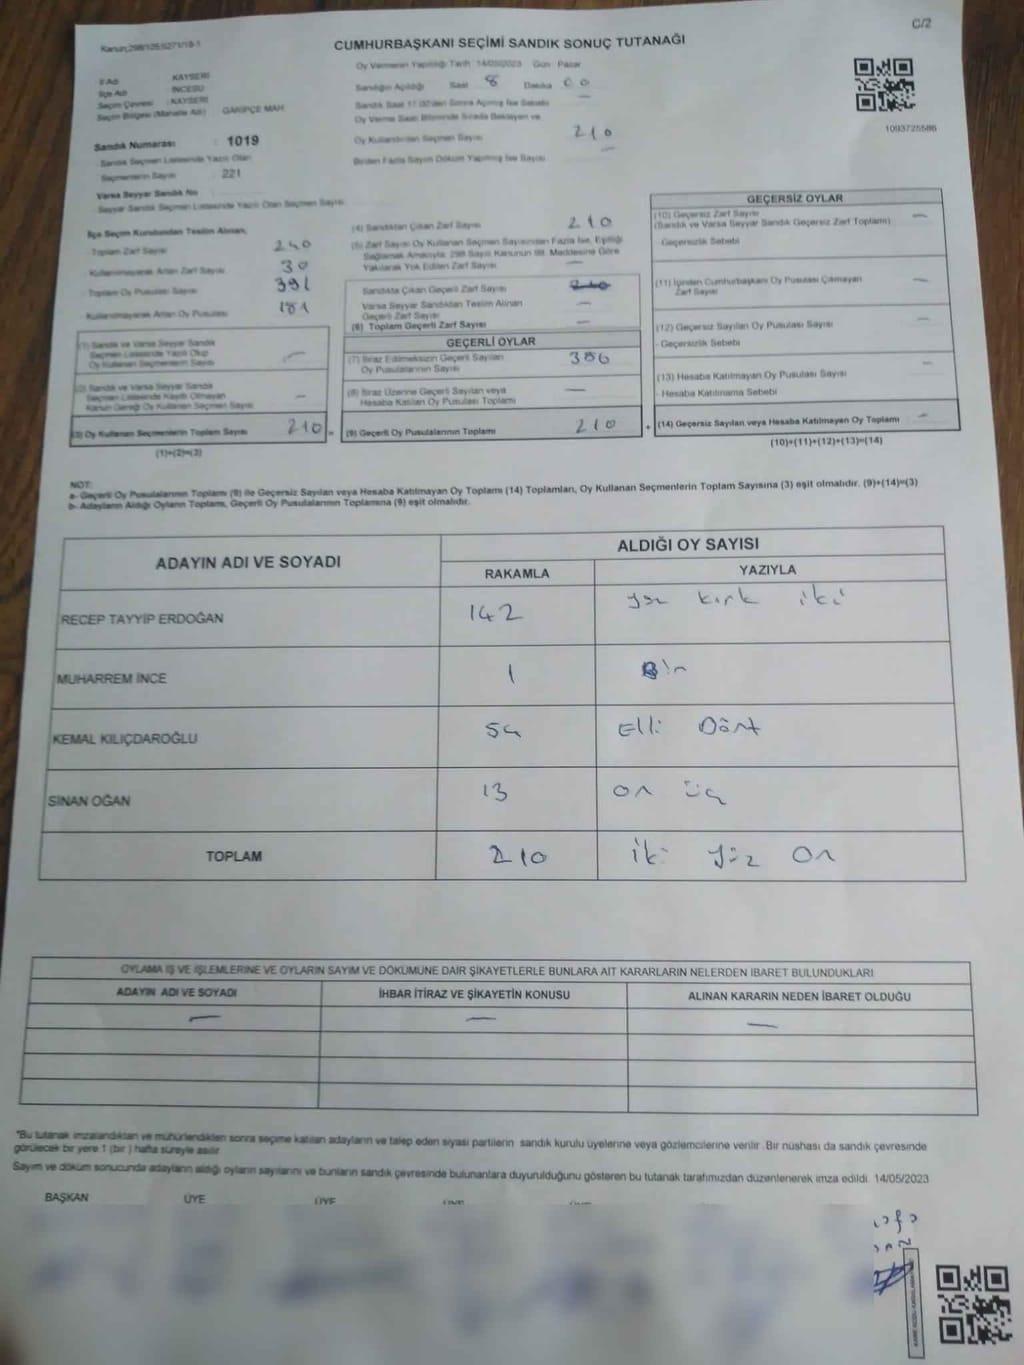 C/2
Kanun;298/105;6271/18-1
CUMHURBAŞKANI SEÇİMİ SANDIK SONUÇ TUTANAĞI
İl Adı : KAYSERİ
İlçe Adı : İNCESU
Seçim Çevresi : KAYSERİ
Seçim Bölgesi (Mahalle Adı) : GARİPÇE MAH.
Sandık Numarası : 1019
Sandık Seçmen Listesinde Yazılı Olan
Seçmenlerin Sayısı : 221
Varsa Seyyar Sandık No
Seyyar Sandık Seçmen Listesinde Yazılı Olan Seçmen Sayısı
Oy Vermenin Yapıldığı Tarih : 14/05/2023 Gün : Pazar
Sandığın Açıldığı Saat 8 Dakika 00
Sandık Saat 17.00'den Sonra Açılmış İse Sebebi —
Oy Verme Saati Bitiminde Sırada Bekleyen ve
Oy Kullandırılan Seçmen Sayısı 210
Birden Fazla Sayım Döküm Yapılmış İse Sayısı —
1093725586
İlçe Seçim Kurulundan Teslim Alınan,
Toplam Zarf Sayısı 240
Kullanılmayarak Artan Zarf Sayısı 30
Toplam Oy Pusulası Sayısı 391
Kullanılmayarak Artan Oy Pusulası 181
(1) Sandık ve Varsa Seyyar Sandık
Seçmen Listesinde Yazılı Olup
Oy Kullanan Seçmenlerin Sayısı —
(2) Sandık ve Varsa Seyyar Sandık
Seçmen Listesinde Kayıtlı Olmayan
Kanun Gereği Oy Kullanan Seçmen Sayısı —
(3) Oy Kullanan Seçmenlerin Toplam Sayısı 210
(1)+(2)=(3)
(4) Sandıktan Çıkan Zarf Sayısı 210
(5) Zarf Sayısı Oy Kullanan Seçmen Sayısından Fazla İse, Eşitliği
Sağlamak Amacıyla, 298 Sayılı Kanunun 98. Maddesine Göre
Yakılarak Yok Edilen Zarf Sayısı —
Sandıkta Çıkan Geçerli Zarf Sayısı 210
Varsa Seyyar Sandıktan Teslim Alınan
Geçerli Zarf Sayısı —
(6) Toplam Geçerli Zarf Sayısı —
GEÇERLİ OYLAR
(7) İtiraz Edilmeksizin Geçerli Sayılan
Oy Pusulalarının Sayısı
(8) İtiraz Üzerine Geçerli Sayılan veya
Hesaba Katılan Oy Pusulası Toplamı —
= (9) Geçerli Oy Pusulalarının Toplamı 210
GEÇERSİZ OYLAR
(10) Geçersiz Zarf Sayısı —
(Sandık ve Varsa Seyyar Sandık Geçersiz Zarf Toplamı)
Geçersizlik Sebebi
(11) İçinden Cumhurbaşkanı Oy Pusulası Çıkmayan —
Zarf Sayısı
(12) Geçersiz Sayılan Oy Pusulası Sayısı —
- Geçersizlik Sebebi
(13) Hesaba Katılmayan Oy Pusulası Sayısı —
- Hesaba Katılmama Sebebi
+ (14) Geçersiz Sayılan veya Hesaba Katılmayan Oy Toplamı —
(10)+(11)+(12)+(13)=(14)
NOT:
a- Geçerli Oy Pusulalarının Toplamı (9) ile Geçersiz Sayılan veya Hesaba Katılmayan Oy Toplamı (14) Toplamları, Oy Kullanan Seçmenlerin Toplam Sayısına (3) eşit olmalıdır. (9)+(14)=(3)
b- Adayların Aldığı Oyların Toplamı, Geçerli Oy Pusulalarının Toplamına (9) eşit olmalıdır.
ADAYIN ADI VE SOYADI
ALDIĞI OY SAYISI
RAKAMLA YAZIYLA
RECEP TAYYİP ERDOĞAN 142 yüz kırk iki
MUHARREM İNCE 1 Bir
KEMAL KILIÇDAROĞLU 54 Elli Dört
SİNAN OĞAN 13 on üç
TOPLAM 210 iki yüz on
OYLAMA İŞ VE İŞLEMLERİNE VE OYLARIN SAYIM VE DÖKÜMÜNE DAİR ŞİKAYETLERLE BUNLARA AİT KARARLARIN NELERDEN İBARET BULUNDUKLARI
ADAYIN ADI VE SOYADI İHBAR İTİRAZ VE ŞİKAYETİN KONUSU ALINAN KARARIN NEDEN İBARET OLDUĞU
— — —
"Bu tutanak imzalandıktan ve mühürlendikten sonra seçime katılan adayların ve talep eden siyasi partilerin sandık kurulu üyelerine veya gözlemcilerine verilir. Bir nüshası da sandık çevresinde
görülecek bir yere 1 (bir) hafta süreyle asılır.
Sayım ve döküm sonucunda adayların aldığı oyların sayılarını ve bunların sandık çevresinde bulunanlara duyurulduğunu gösteren bu tutanak tarafımızdan düzenlenerek imza edildi. 14/05/2023
BAŞKAN ÜYE ÜYE ÜYE